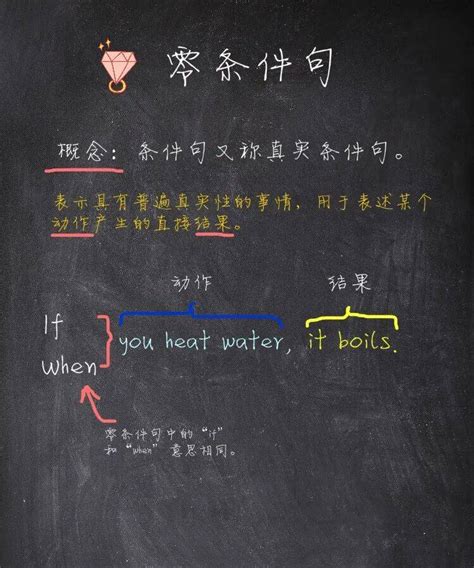 零条件句
概念：条件句又称真实条件句。
表示具有普遍真实性的事情，用于表述某个
动作产生的直接结果。
动作 结果
If
when
you heat water, it boils.
零条件句中的“if”
和“when”意思相同。